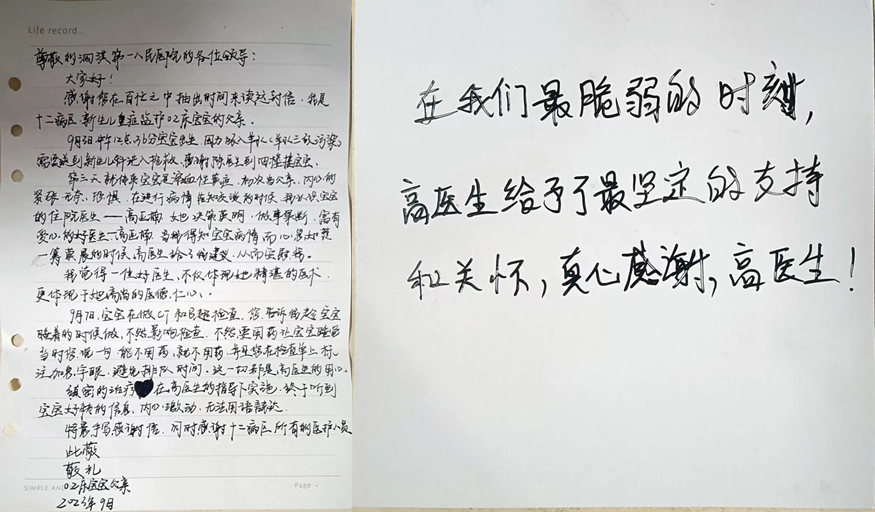 Life record...
尊敬的泗洪第一人民医院的各位领导：
大家好！
感谢您在百忙之中抽出时间来读这封信，我是
十二病区新生儿重症监护02床宝宝的父亲。
9月3日中午12点36分宝宝出生，因为吸入羊水（羊水三级污染）
需要送到新生儿科进入抢救，感谢陈医生到四楼接宝宝。
第二天就传来宝宝是溶血性黄疸，初次当父亲，内心的
紧张、无奈、恐惧，在进行病情告知谈话的时候，我认识宝宝
的住院医生——高医生，她决策英明，做事果断，富有
爱心的好医生—高医生，当我得知宝宝病情而心急如焚
一筹莫展的时候，高医生给了我建议，从而安慰我。
我觉得一位好医生，不仅体现她精湛的医术
更体现于她高尚的医德、仁心。
9月7日，宝宝在做CT和B超检查，您告诉我趁宝宝
睡着的时候做，不然影响检查，不然要用药让宝宝睡着
当时您说一句能不用药，就不用药，并且您在检查单上标
注加急字眼，避免排队时间，这一切都是高医生的用心。
缜密的治疗在高医生的指导下实施，终于听到
宝宝好转的信息，内心激动，无法用语言表达
特亲手写感谢信，同时感谢十二病区所有的医护人员
此致
敬礼
02床宝宝父亲
2023年9月
SIMPLE AN
Page
在我们最脆弱的时刻，
高医生给予了最坚定的支持
和关怀，真心感谢，高医生！